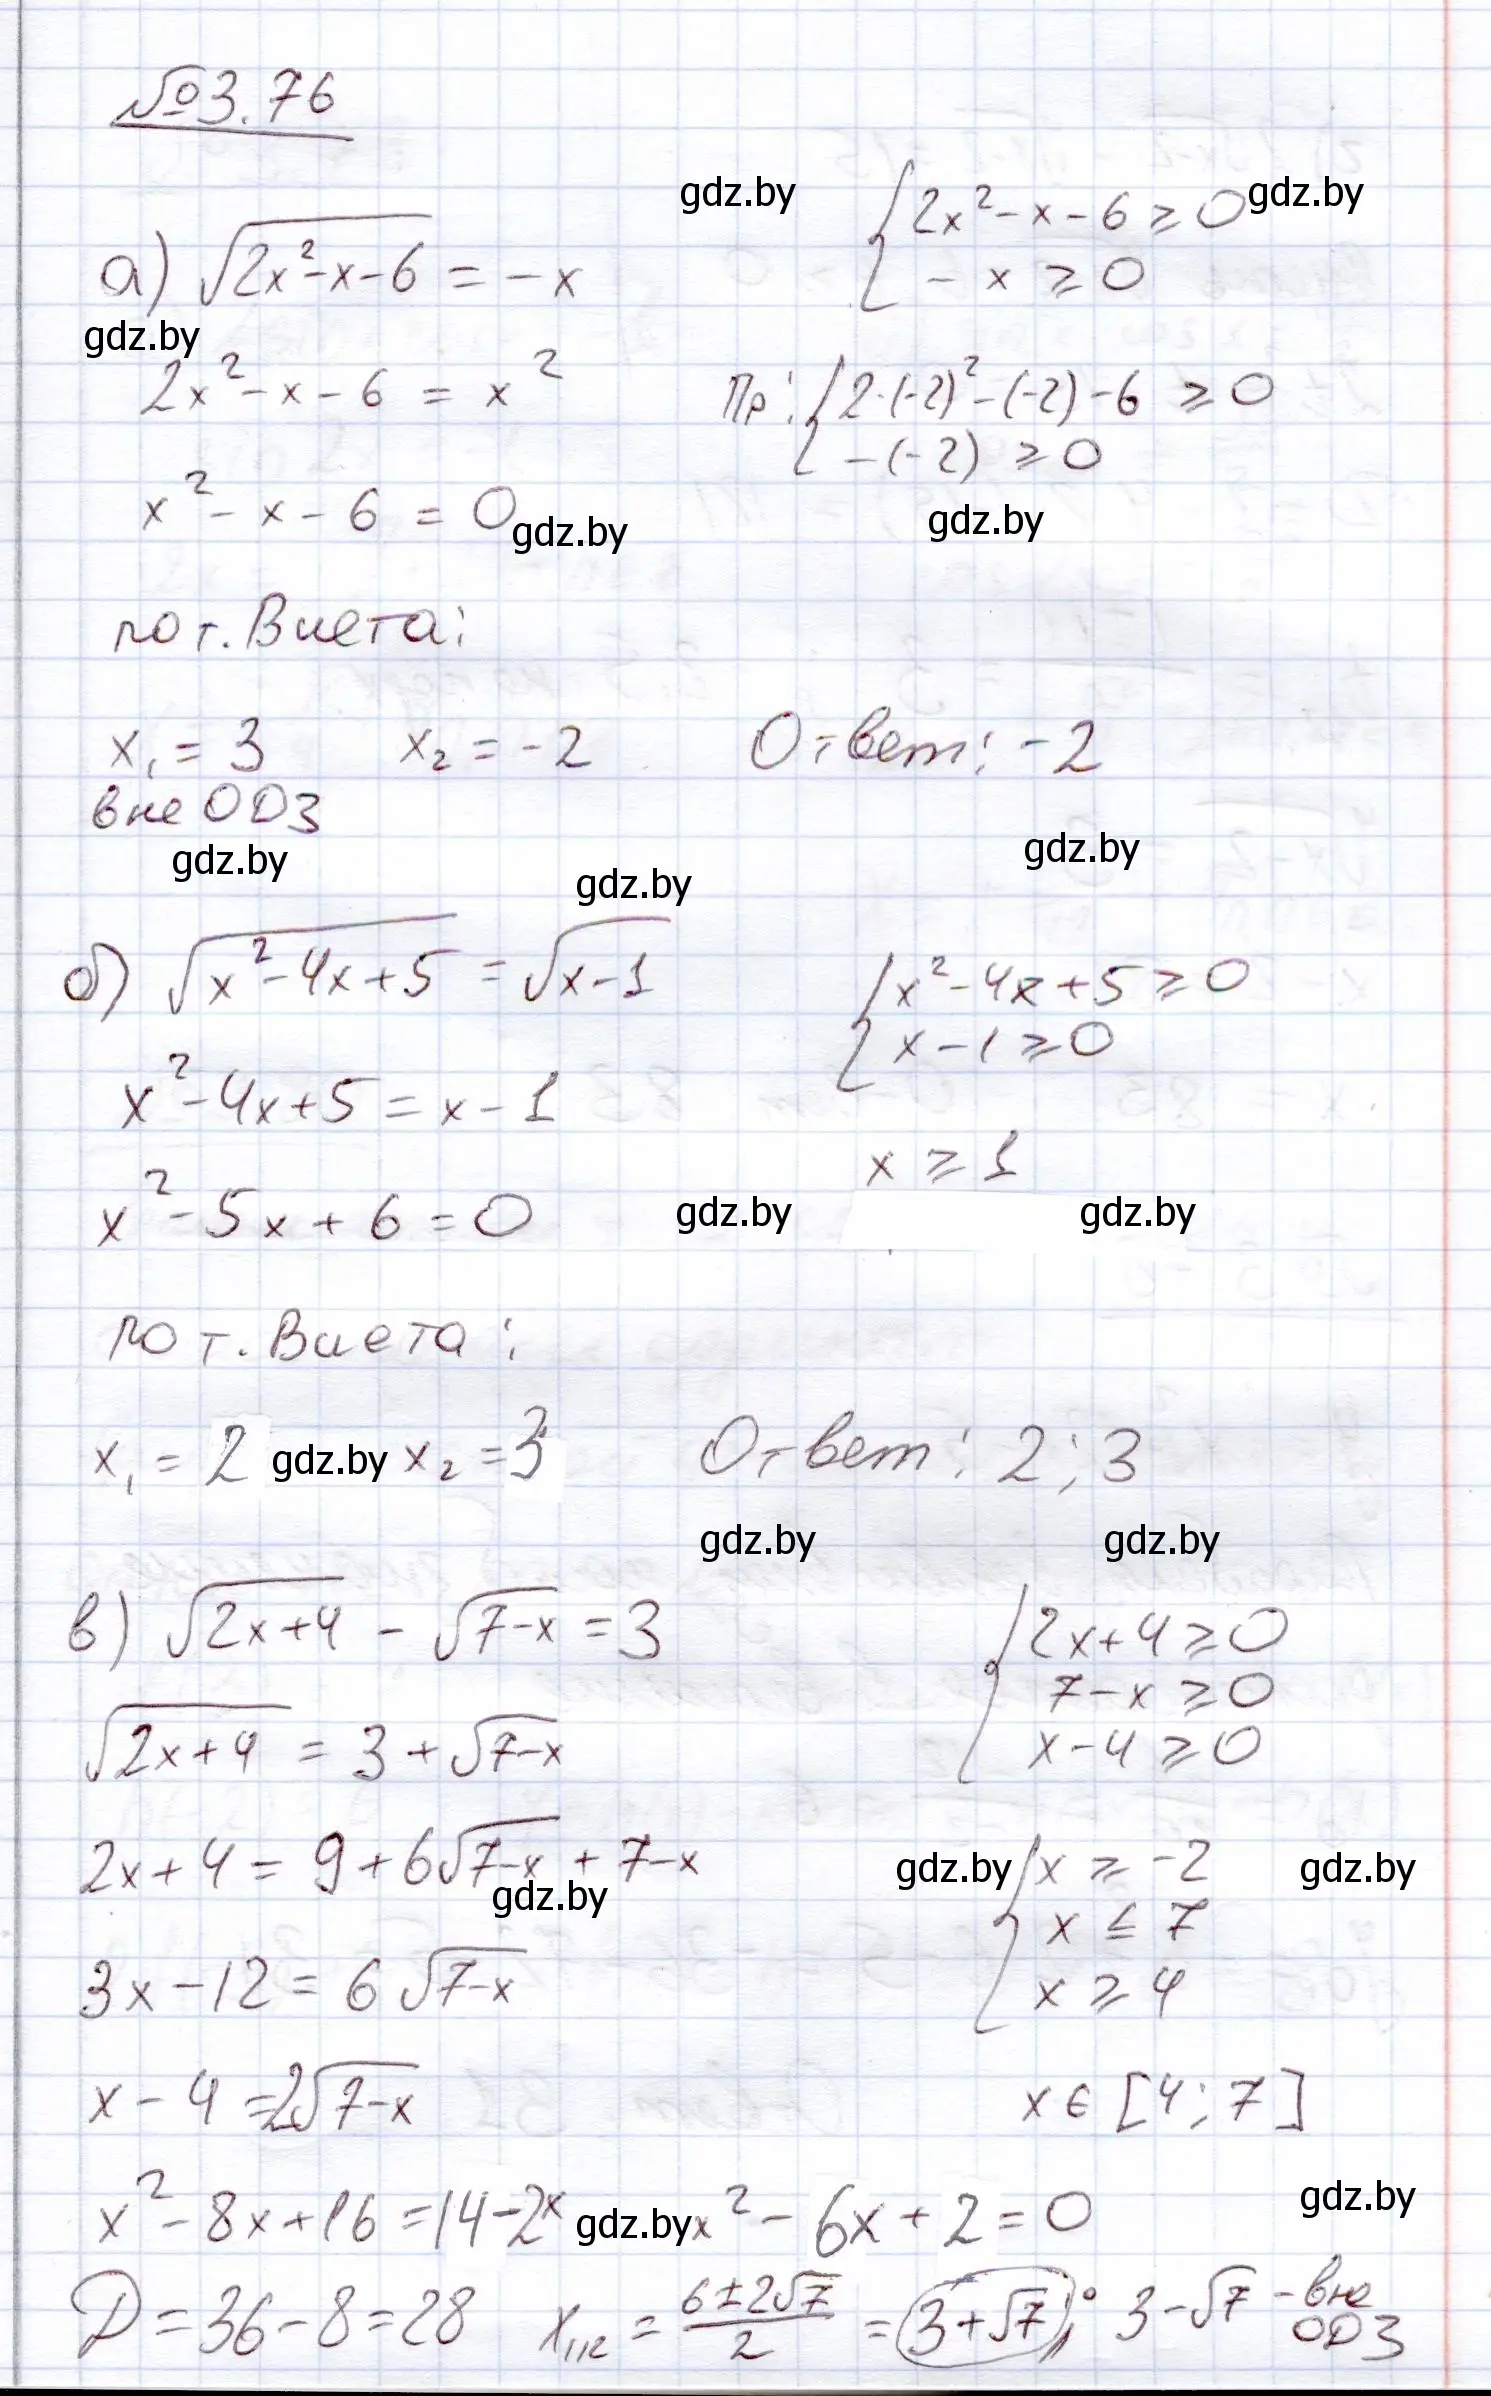 №3.76
gdz.by
gdz.by
а) √(2x²-x-6) = -x
{2x²-x-6 ≥ 0
{-x ≥ 0
gdz.by
2x²-x-6 = x²
Пр: {2·(-2)²-(-2)-6 ≥ 0
{-(-2) ≥ 0
x²-x-6 = 0
gdz.by
gdz.by
по т. Виета:
x₁ = 3 x₂ = -2
Ответ: -2
вне ОДЗ
gdz.by
gdz.by
gdz.by
б) √(x²-4x+5) = √(x-1)
{x²-4x+5 ≥ 0
{x-1 ≥ 0
x²-4x+5 = x-1
x ≥ 1
x²-5x+6 = 0
gdz.by
gdz.by
по т. Виета:
x₁ = 2 gdz.by x₂ = 3
Ответ: 2; 3
gdz.by
gdz.by
в) √(2x+4) - √(7-x) = 3
{2x+4 ≥ 0
{7-x ≥ 0
{x-4 ≥ 0
√(2x+4) = 3+√(7-x)
2x+4 = 9+6√(7-x)+7-x
gdz.by
gdz.by
gdz.by
{x ≥ -2
{x ≤ 7
{x ≥ 4
3x-12 = 6√(7-x)
x-4 = 2√(7-x)
x ∈ [4; 7]
x²-8x+16 = 14-2x gdz.by x²-6x+2 = 0
gdz.by
D = 36-8 = 28 x₁,₂ = (6±2√7)/2 = 3+√7; 3-√7 - вне ОДЗ